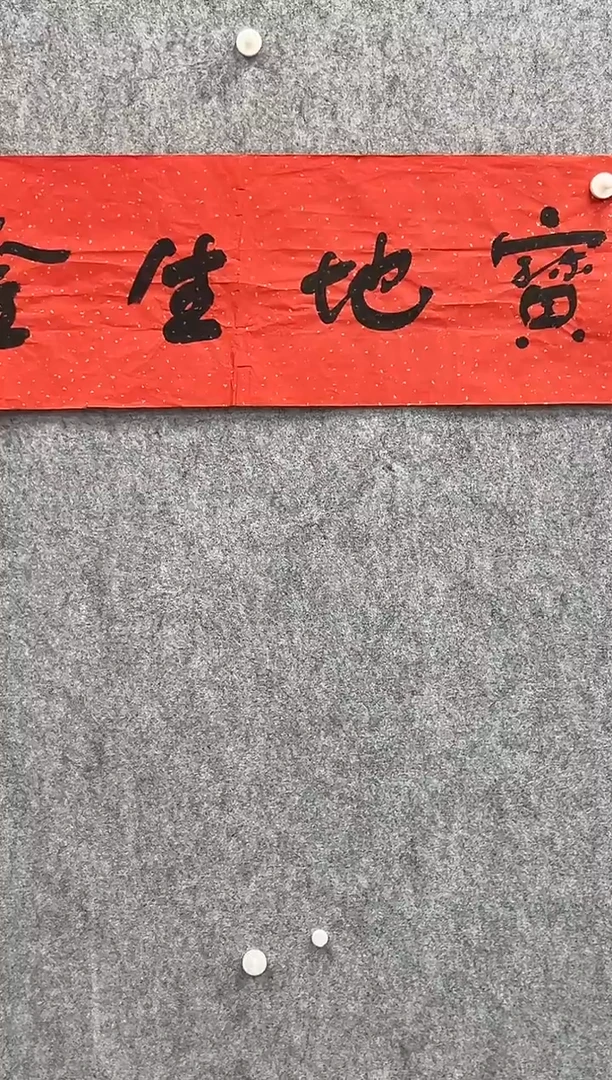 寶地生金